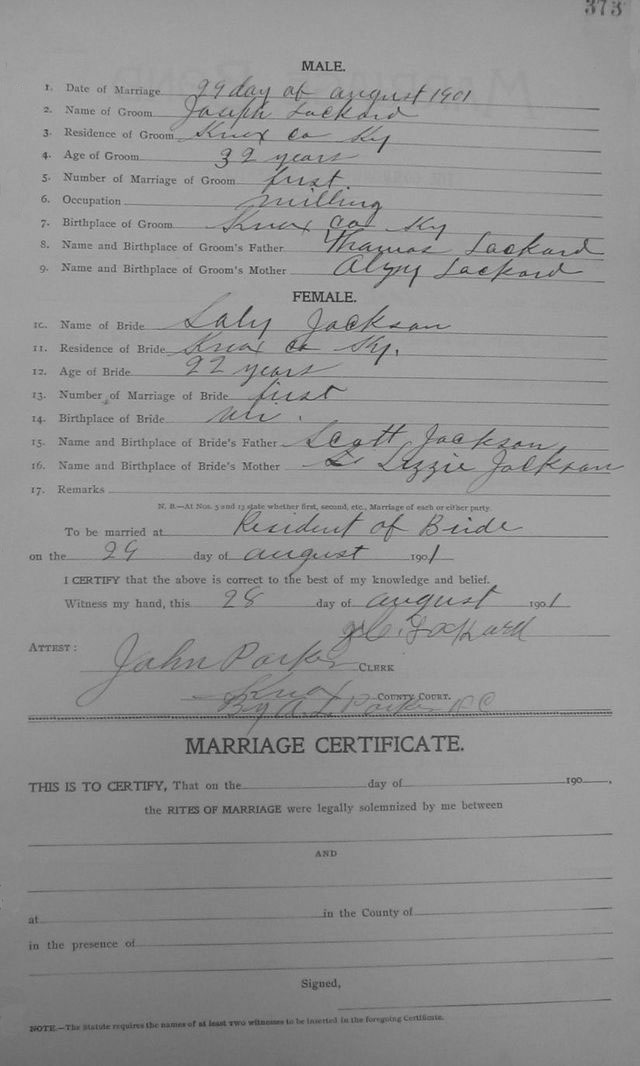 373
MALE.
1. Date of Marriage 29 day of august 1901
2. Name of Groom Joseph Lockard
3. Residence of Groom Knox co Ky
4. Age of Groom 32 years
5. Number of Marriage of Groom first
6. Occupation milling
7. Birthplace of Groom Knox co Ky
8. Name and Birthplace of Groom's Father Thomas Lockard
9. Name and Birthplace of Groom's Mother Lockard
FEMALE.
10. Name of Bride Saly Jackson
11. Residence of Bride Knox co Ky.
12. Age of Bride 22 years
13. Number of Marriage of Bride first
14. Birthplace of Bride
15. Name and Birthplace of Bride's Father Scott Jackson
16. Name and Birthplace of Bride's Mother Lizzie Jackson
17. Remarks
N. B.—At Nos. 5 and 13 state whether first, second, etc., Marriage of each or either party.
To be married at Resident of Bride
on the 29 day of august 1901
I CERTIFY that the above is correct to the best of my knowledge and belief.
Witness my hand, this 28 day of august 1901
Lockard
ATTEST: John Parker CLERK
Knox COUNTY COURT.
By A. L Parker D C
MARRIAGE CERTIFICATE.
THIS IS TO CERTIFY, That on the day of 190 .
the RITES OF MARRIAGE were legally solemnized by me between
AND
at in the County of
in the presence of
Signed,
NOTE.—The Statute requires the names of at least two witnesses to be inserted in the foregoing Certificate.